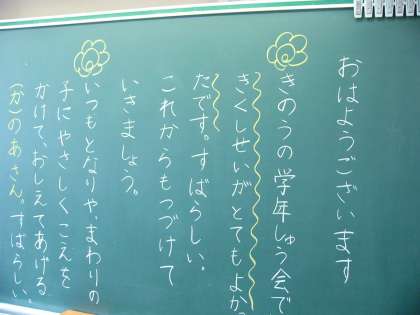 おはようございます
きのうの学年しゅう会で
きくしせいがとてもよか
たです。すばらしい。
これからもつづけて
いきましょう。
いつもとなりや、まわりの
子にやさしくこえを
かけて、おしえてあげる
(分)のあさん。すばらしい。